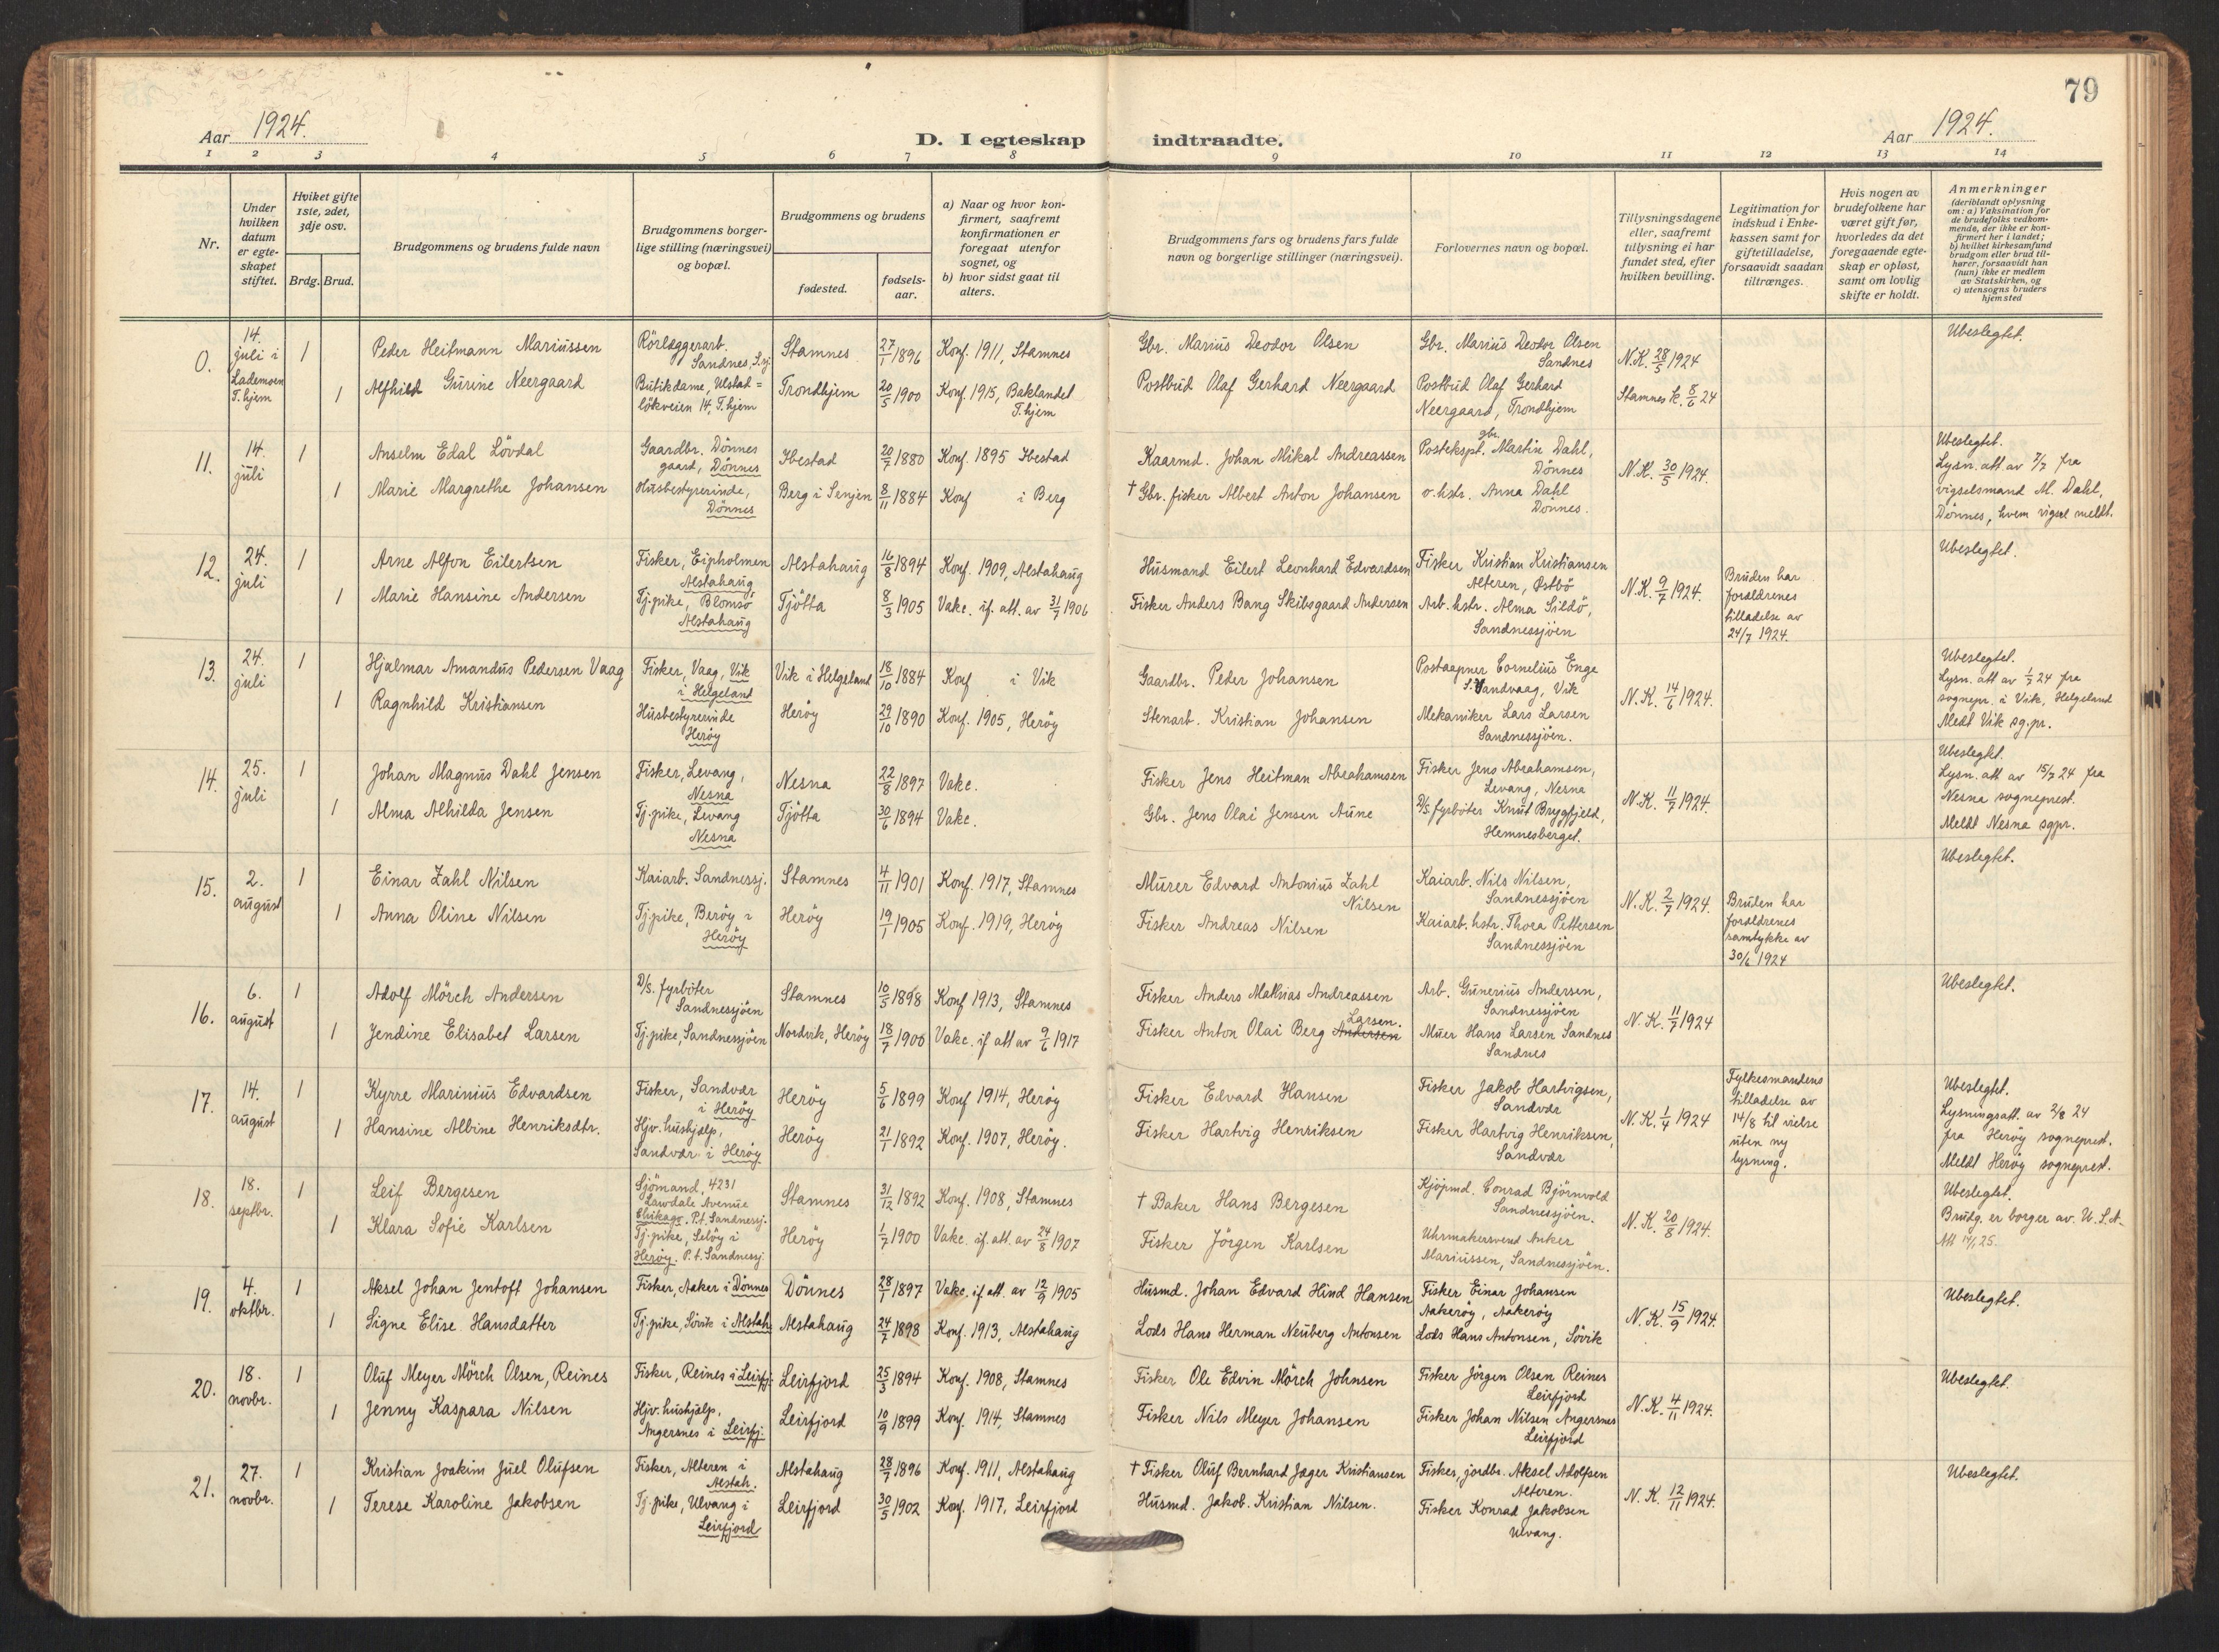 79
Aar 1924.
D. I egteskap indtraadte.
Aar 1924.
1 2 3 4 5 6 7 8 9 10 11 12 13 14
Nr.
Under hvilken datum er egteskapet stiftet.
Hviket gifte 1ste, 2det, 3dje osv.
Brdg. Brud.
Brudgommens og brudens fulde navn
Brudgommens borgerlige stilling (næringsvei) og bopæl.
Brudgommens og brudens
fødested.
fødselsaar.
a) Naar og hvor konfirmert, saafremt konfirmationen er foregaat utenfor sognet, og
b) hvor sidst gaat til alters.
Brudgommens fars og brudens fars fulde navn og borgerlige stillinger (næringsvei).
Forlovernes navn og bopæl.
Tillysningsdagene eller, saafremt tillysning ei har fundet sted, efter hvilken bevilling.
Legitimation for indskud i Enkekassen samt for giftetilladelse, forsaavidt saadan tiltrænges.
Hvis nogen av brudefolkene har været gift før, hvorledes da det foregaaende egteskap er opløst, samt om lovlig skifte er holdt.
Anmerkninger (deriblandt oplysning om: a) Vaksination for de brudefolks vedkommende, der ikke er konfirmert her i landet; b) hvilket kirkesamfund brudgom eller brud tilhører, forsaavidt han (hun) ikke er medlem av Statskirken, og c) utensogns bruders hjemsted
0. 14. juli i Lademoen T.hjem
1 Peder Heitmann Mariussen Rörlæggerarb. Sandnes, S.sj Stamnes 27/1 1896 Konf. 1911, Stamnes Gbr. Marius Deodor Olsen Gbr. Marius Deodor Olsen Sandnes N.K. 28/5 1924 Ubeslegtet.
1 Alfhild Gurine Neergaard Butikdame, Ulstadlökveien 14, T.hjem Trondhjem 20/5 1900 Konf. 1915, Baklandet T.hjem Postbud Olaf Gerhard Neergaard Postbud Olaf Gerhard Neergaard, Trondhjem Stamnes K. 8/6 24
11. 14. juli
1 Anselm Edal Lövdal Gaardbr. Dönnes gaard, Dönnes Ibestad 20/7 1880 Konf. 1895 Ibestad Kaarmd. Johan Mikal Andreassen Postekspt. gbr. Martin Dahl, Dönnes N.K. 30/5 1924. Ubeslegtet. Lysn. att. av 7/7 fra vigselsmand M. Dahl, Dönnes, hvem vigsel meldt.
1 Marie Margrethe Johansen Husbestyrerinde, Dönnes Berg i Senjen 8/11 1884 Konf i Berg † Gbr. fisker Albert Anton Johansen o.hstr. Anna Dahl Dönnes.
12. 24. juli
1 Arne Alfon Eilertsen Fisker, Eipholmen Alstahaug Alstahaug 16/8 1894 Konf. 1909, Alstahaug Husmand Eilert Leonhard Edvardsen Fisker Kristian Kristiansen Alteren, Østbö N.K. 9/7 1924. Bruden har forældrenes tilladelse av 24/7 1924. Ubeslegtet.
1 Marie Hansine Andersen Tj.pike, Blomsö Alstahaug Tjötta 8/3 1905 Vakc. if. att. av 31/7 1906 Fisker Anders Bang Skibsgaard Andersen Arb. hstr. Alma Sildö, Sandnessjöen
13. 24. juli
1 Hjalmar Amandus Pedersen Vaag Fisker, Vaag, Vik i Helgeland Vik i Helgeland 18/10 1884 Konf i Vik Gaardbr. Peder Johansen Postaapner Cornelius Enge S. Vandvaag, Vik N.K. 14/6 1924. Ubeslegtet. Lysn. att av 1/7 24 fra sognepr. i Vik, Helgeland Meldt Vik sg.pr.
1 Ragnhild Kristiansen Husbestyrerinde Heröy Heröy 29/10 1890 Konf. 1905, Heröy Stenarb. Kristian Johansen Mekaniker Lars Larsen Sandnessjöen.
14. 25. juli
1 Johan Magnus Dahl Jensen Fisker, Levang, Nesna Nesna 22/8 1897 Vakc. Fisker Jens Heitman Abrahamsen Fisker Jens Abrahamsen, Levang, Nesna N.K. 11/7 1924. Ubeslegtet. Lysn. att av 15/7 24 fra Nesna sogneprest. Meldt Nesna sgpr.
1 Alma Alhilda Jensen Tj.pike, Levang Nesna Tjötta 30/6 1894 Vakc. Gbr. Jens Olai Jensen Aune D/s. fyrböter Knut Brygfjeld, Hemnesberget.
15. 2. august
1 Einar Zahl Nilsen Kaiarb. Sandnessj. Stamnes 4/11 1901 Konf. 1917, Stamnes Murer Edvard Antonius Zahl Nilsen Kaiarb. Nils Nilsen, Sandnessjöen N.K. 2/7 1924. Bruden har forældrenes samtykke av 30/6 1924 Ubeslegtet.
1 Anna Oline Nilsen Tj.pike, Beröy i Heröy Heröy 19/1 1905 Konf. 1919, Heröy Fisker Andreas Nilsen Kaiarb. hstr. Thora Pettersen Sandnessjöen
16. 6. august
1 Adolf Mörch Andersen D/s. fyrböter Sandnessjöen Stamnes 10/5 1898 Konf 1913, Stamnes Fisker Anders Mathias Andreassen Arb. Gunerius Andersen, Sandnessjöen N.K. 11/7 1924 Ubeslegtet.
1 Jendine Elisabet Larsen Tj.pike, Sandnessjöen Nordvik, Heröy 18/7 1900 Vakc. if att av 9/6 1917 Fisker Anton Olai Berg Andersen Larsen. Muer Hans Larsen Sandnes Sandnes
17. 14. august
1 Kyrre Marinius Edvardsen Fisker, Sandvær i Heröy Heröy 5/6 1899 Konf 1914, Heröy Fisker Edvard Hansen Fisker Jakob Hartvigsen, Sandvær N.K. 1/4 1924 Fylkesmandens tilladelse av 14/8 til vielse uten ny lysning. Ubeslegtet. Lysningsatt. av 2/8 24 fra Heröy sogneprest. Meldt Heröy sogneprest.
1 Hansine Albine Henriksdtr. Hjv. hushjælp, Sandvær i Heröy Heröy 21/1 1892 Konf. 1907, Heröy. Fisker Hartvig Henriksen Fisker Hartvig Henriksen, Sandvær
18. 18. septbr.
1 Leif Bergesen Sjömand, 4231 Lawdale Avenue Chikago. P.t. Sandnessj. Stamnes 31/12 1892 Konf. 1908, Stamnes † Baker Hans Bergesen Kjöpmd. Conrad Björnvold Sandnessjöen. N.K. 20/8 1924. Ubeslegtet. Brudg. er borger av U.S.A.
1 Klara Sofie Karlsen Tj.pike, Selöy i Heröy. P.t. Sandnessj. Heröy 1/7 1900 Vakc. if. att. av 24/8 1907 Fisker Jörgen Karlsen Uhrmakersvend Anker Mariussen, Sandnessjöen.
19. 4. oktbr.
1 Aksel Johan Jentoft Johansen Fisker, Aaker i Dönnes Dönnes 28/1 1897 Vakc. if. att. av 12/9 1905 Husmd. Johan Edvard Hind Hansen Fisker Einar Johansen Aakeröy, Aakeröy N.K. 15/9 1924. Ubeslegtet.
1 Signe Elise Hansdatter Tj.pike, Sövik i Alstah. Alstahaug 24/7 1898 Konf. 1913, Alstahaug Lods Hans Herman Neuberg Antonsen Lods Hans Antonsen, Sövik
20. 18. novbr.
1 Oluf Meyer Mörch Olsen, Reines Fisker, Reines i Leirfj. Leirfjord 25/3 1894 Konf. 1908, Stamnes Fisker Ole Edvin Mörch Johnsen Fisker Jörgen Olsen Reines Leirfjord N.K. 4/11 1924. Ubeslegtet.
1 Jenny Kaspara Nilsen Hjv. hushjælp, Angersnes i Leirfj. Leirfjord 10/9 1899 Konf. 1914, Stamnes Fisker Nils Meyer Johansen Fisker Johan Nilsen Angersnes Leirfjord
21. 27. novbr.
1 Kristian Joakim Juel Olufsen Fisker, Alteren i Alstah. Alstahaug 28/7 1896 Konf. 1911, Alstahaug † Fisker Oluf Bernhard Jæger Kristiansen Fisker, jordbr. Aksel Adolfsen Alteren. N.K. 12/11 1924. Ubeslegtet.
1 Terese Karoline Jakobsen Tj.pike, Ulvang i Leirfjord Leirfjord 30/5 1902 Konf. 1917, Leirfjord Husmd. Jakob Kristian Nilsen. Fisker Konrad Jakobsen Ulvang.